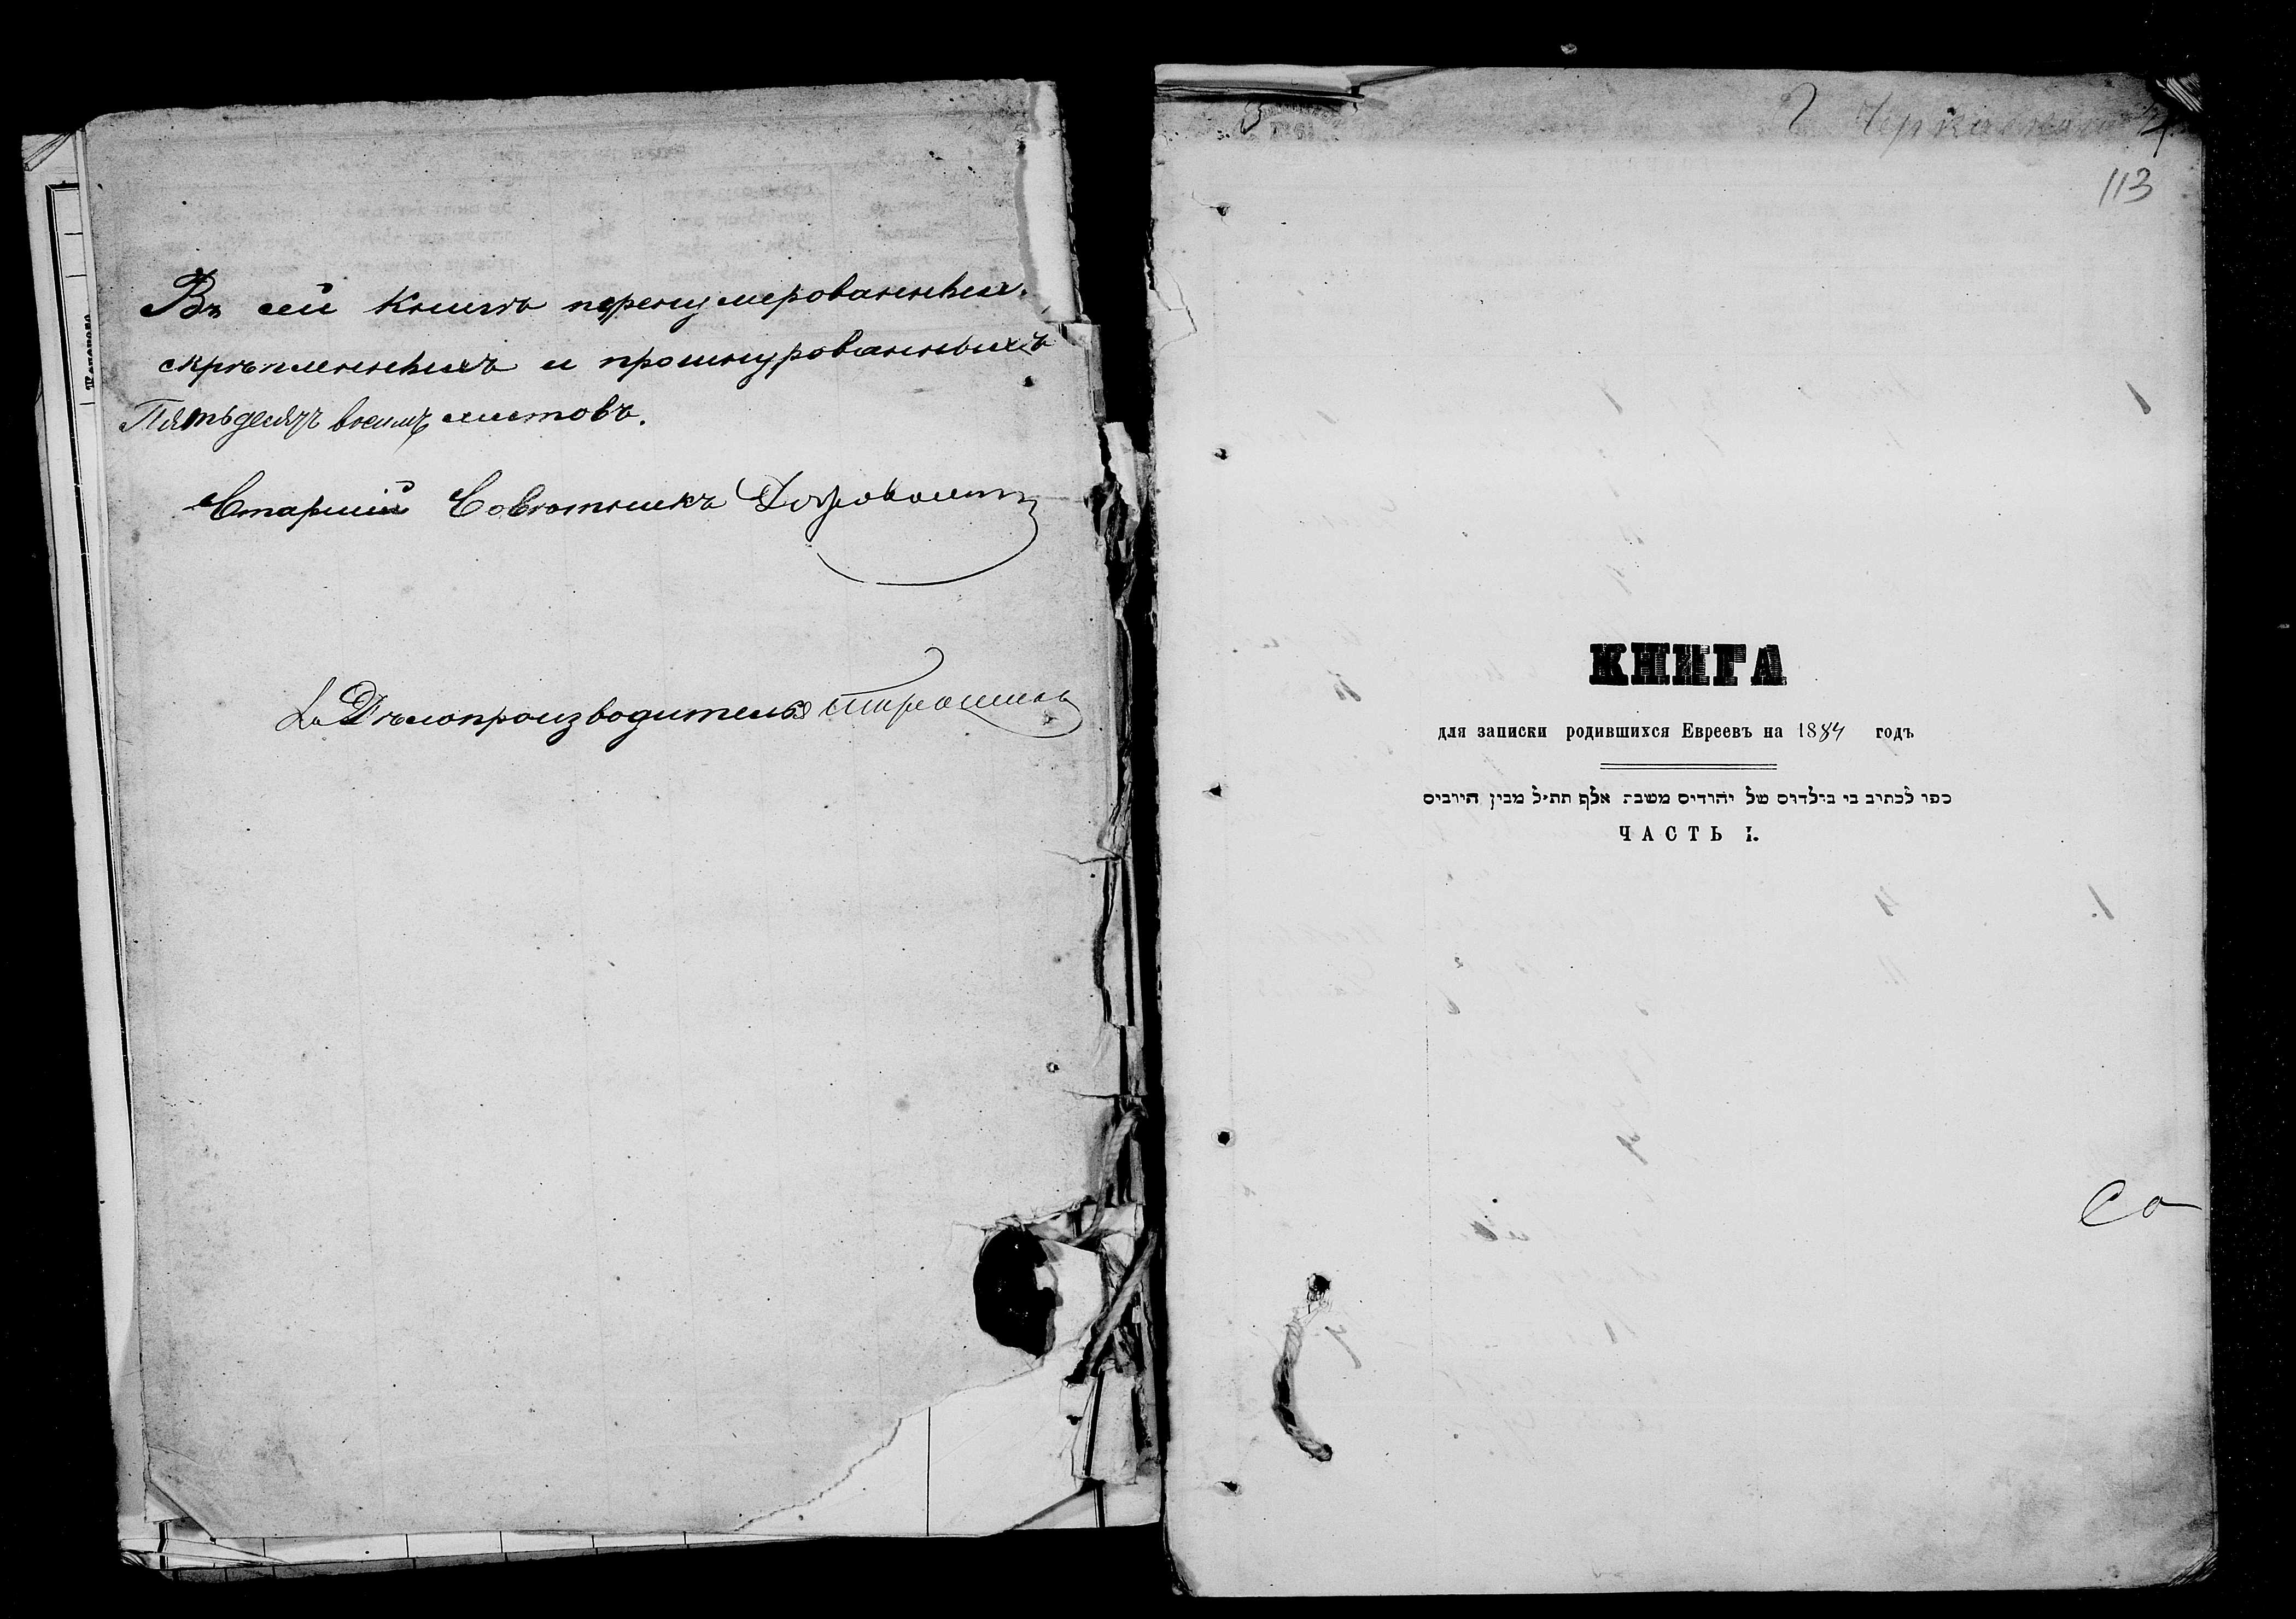 Въ сей книгѣ перенумерованныхъ
скрѣпленныхъ и прошнурованныхъ
Пятьдесятъ восемь листовъ.
Старшій Совѣтникъ
Дѣлопроизводитель
113
КНИГА
для записки родившихся Евреевъ на 1884 годъ
כפו לכתיב בי בילדום של יהודים משבה אלף תת״ל מבין היוביס
ЧАСТЬ I.
Со